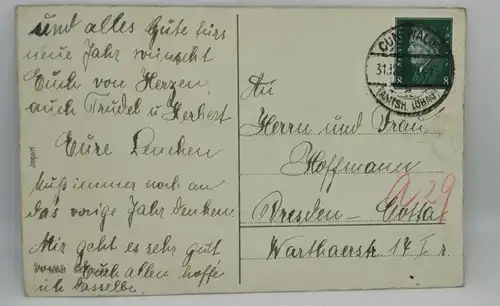 und alles Gute fürs
neue Jahr wünscht
Euch von Herzen,
auch Trudel u. Herbert
Eure Lenchen
Muß immer noch an
das vorige Jahr denken.
Mir geht es sehr gut
Euch allen hoffe
ich dasselbe.
Import
An
Herrn und Frau
Hoffmann
Dresden-Cotta
Warthaerstr. 17 I. r.
CUNEWALDE
31.12
(AMTSH. LÖBAU)
8 8
29